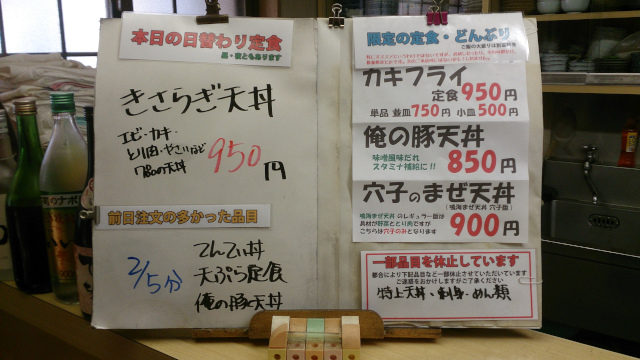 本日の日替わり定食
昼・夜ともあります
きさらぎ天丼
エビ・カキ・
とり肉・やさいなど
7品の天丼
950円
前日注文の多かった品目
2/5分
てんてい丼
天ぷら定食
俺の豚天丼
限定の定食・どんぶり
ご飯の大盛りは別途料金
カキフライ
定食 950円
単品 並皿 750円 小皿 500円
俺の豚天丼
味噌風味だれ
スタミナ補給に!!
850円
穴子のまぜ天丼
(鳴海まぜ天丼 穴子版)
鳴海まぜ天丼のレギュラー版は
具材が野菜ととり肉ですが
こちらは穴子のみとなります
900円
一部品目を休止しています
都合により下記品目など一部休止させていただいています
ご迷惑をおかけしますがご了承ください
特上天丼・刺身・めん類